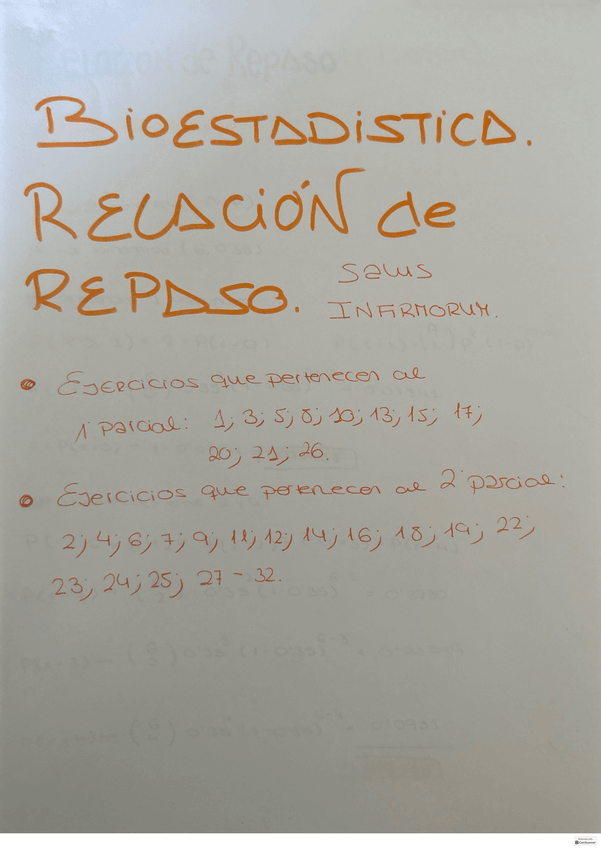 BIOESTADISTICA.
RELACIÓN de
REPASO. SALUS
INFIRMORUM.
Ejercicios que pertenecen al
1 parcial: 1; 3; 5; 8; 10; 13; 15; 17;
20; 21; 26.
Ejercicios que pertenecen al 2 parcial:
2; 4; 6; 7; 9; 11; 12; 14; 16; 18; 19; 22;
23; 24; 25; 27-32.